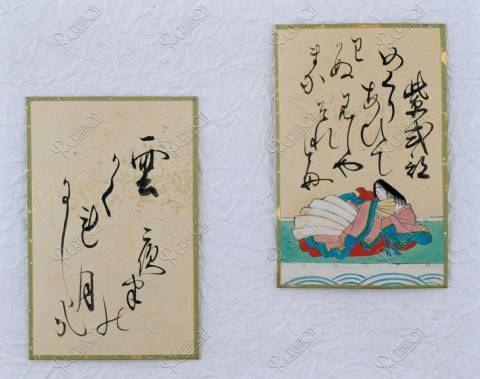 紫式部
めくり
あひて
見しや
それとも
わかぬ
まに
雲
かく
れ
にし
夜半の
月
かな